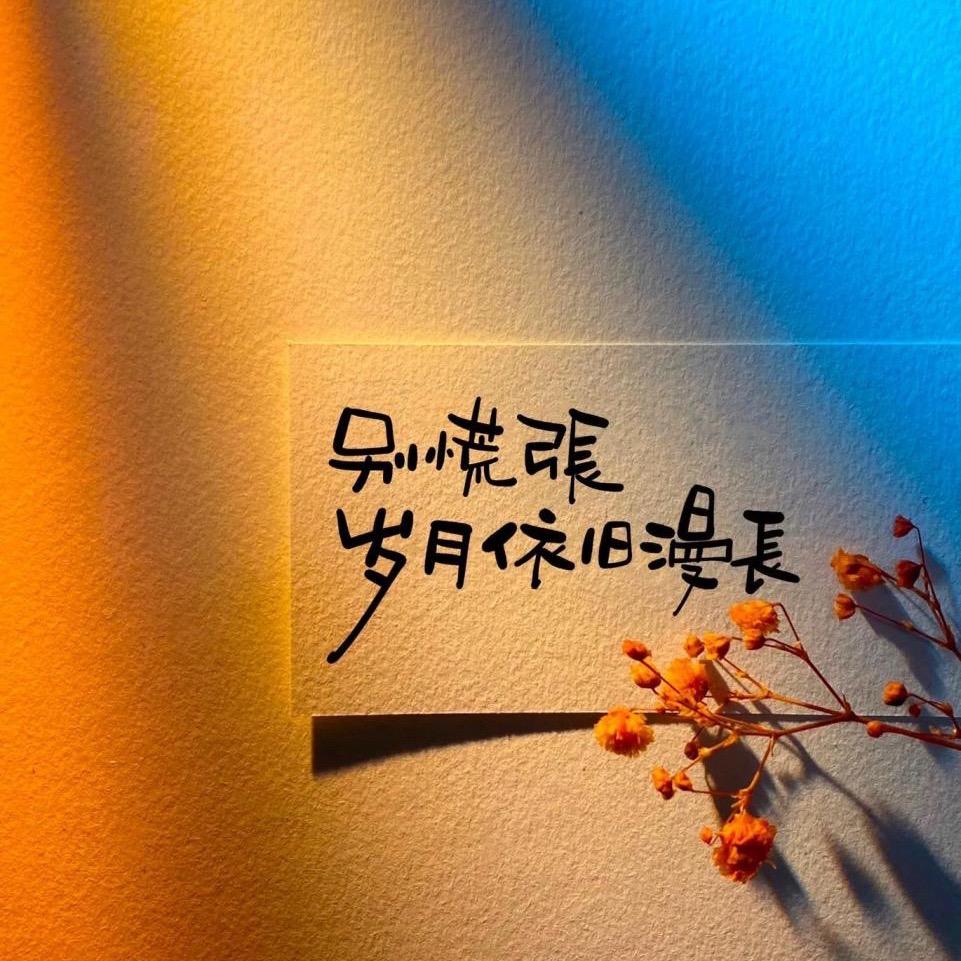 别慌張
岁月依旧漫長